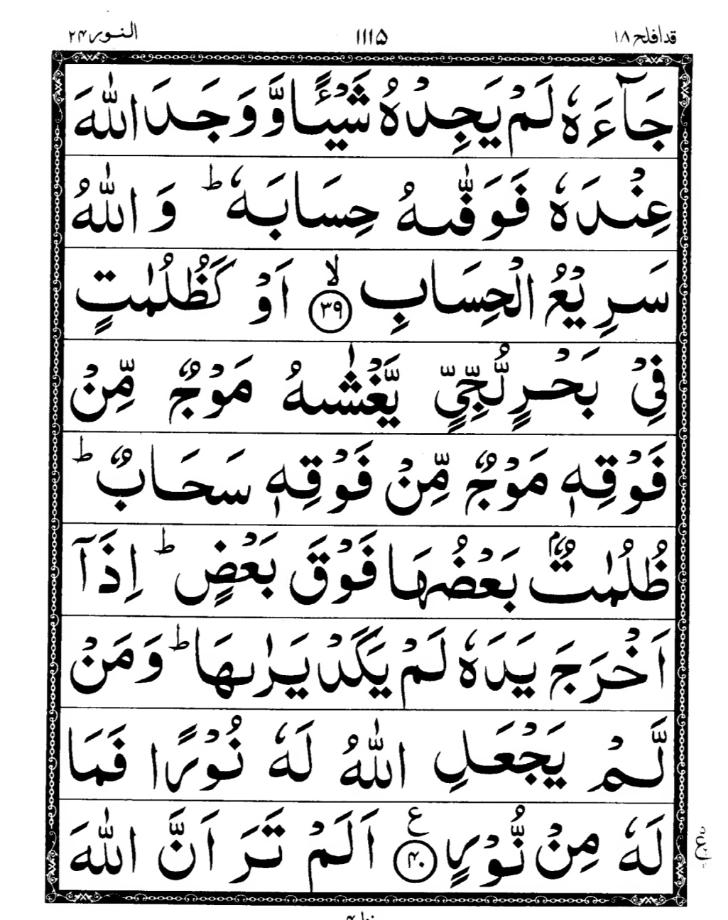 قدافلح ۱۸
۱۱۱۵
النور ۲۴
جَآءَهٗ لَمْ يَجِدْهُ شَيْـًٔا وَّ وَجَدَ اللّٰهَ
عِنْدَهٗ فَوَفّٰىهُ حِسَابَهٗ ؕ وَ اللّٰهُ
سَرِيْعُ الْحِسَابِ ۙ﴿۳۹﴾ اَوْ كَظُلُمٰتٍ
فِيْ بَحْرٍ لُّجِّيٍّ يَّغْشٰىهُ مَوْجٌ مِّنْ
فَوْقِهٖ مَوْجٌ مِّنْ فَوْقِهٖ سَحَابٌ ؕ
ظُلُمٰتٌۢ بَعْضُهَا فَوْقَ بَعْضٍ ؕ اِذَاۤ
اَخْرَجَ يَدَهٗ لَمْ يَكَدْ يَرٰىهَا ؕ وَ مَنْ
لَّمْ يَجْعَلِ اللّٰهُ لَهٗ نُوْرًا فَمَا
لَهٗ مِنْ نُّوْرٍ ﴿۴۰﴾ ع اَلَمْ تَرَ اَنَّ اللّٰهَ